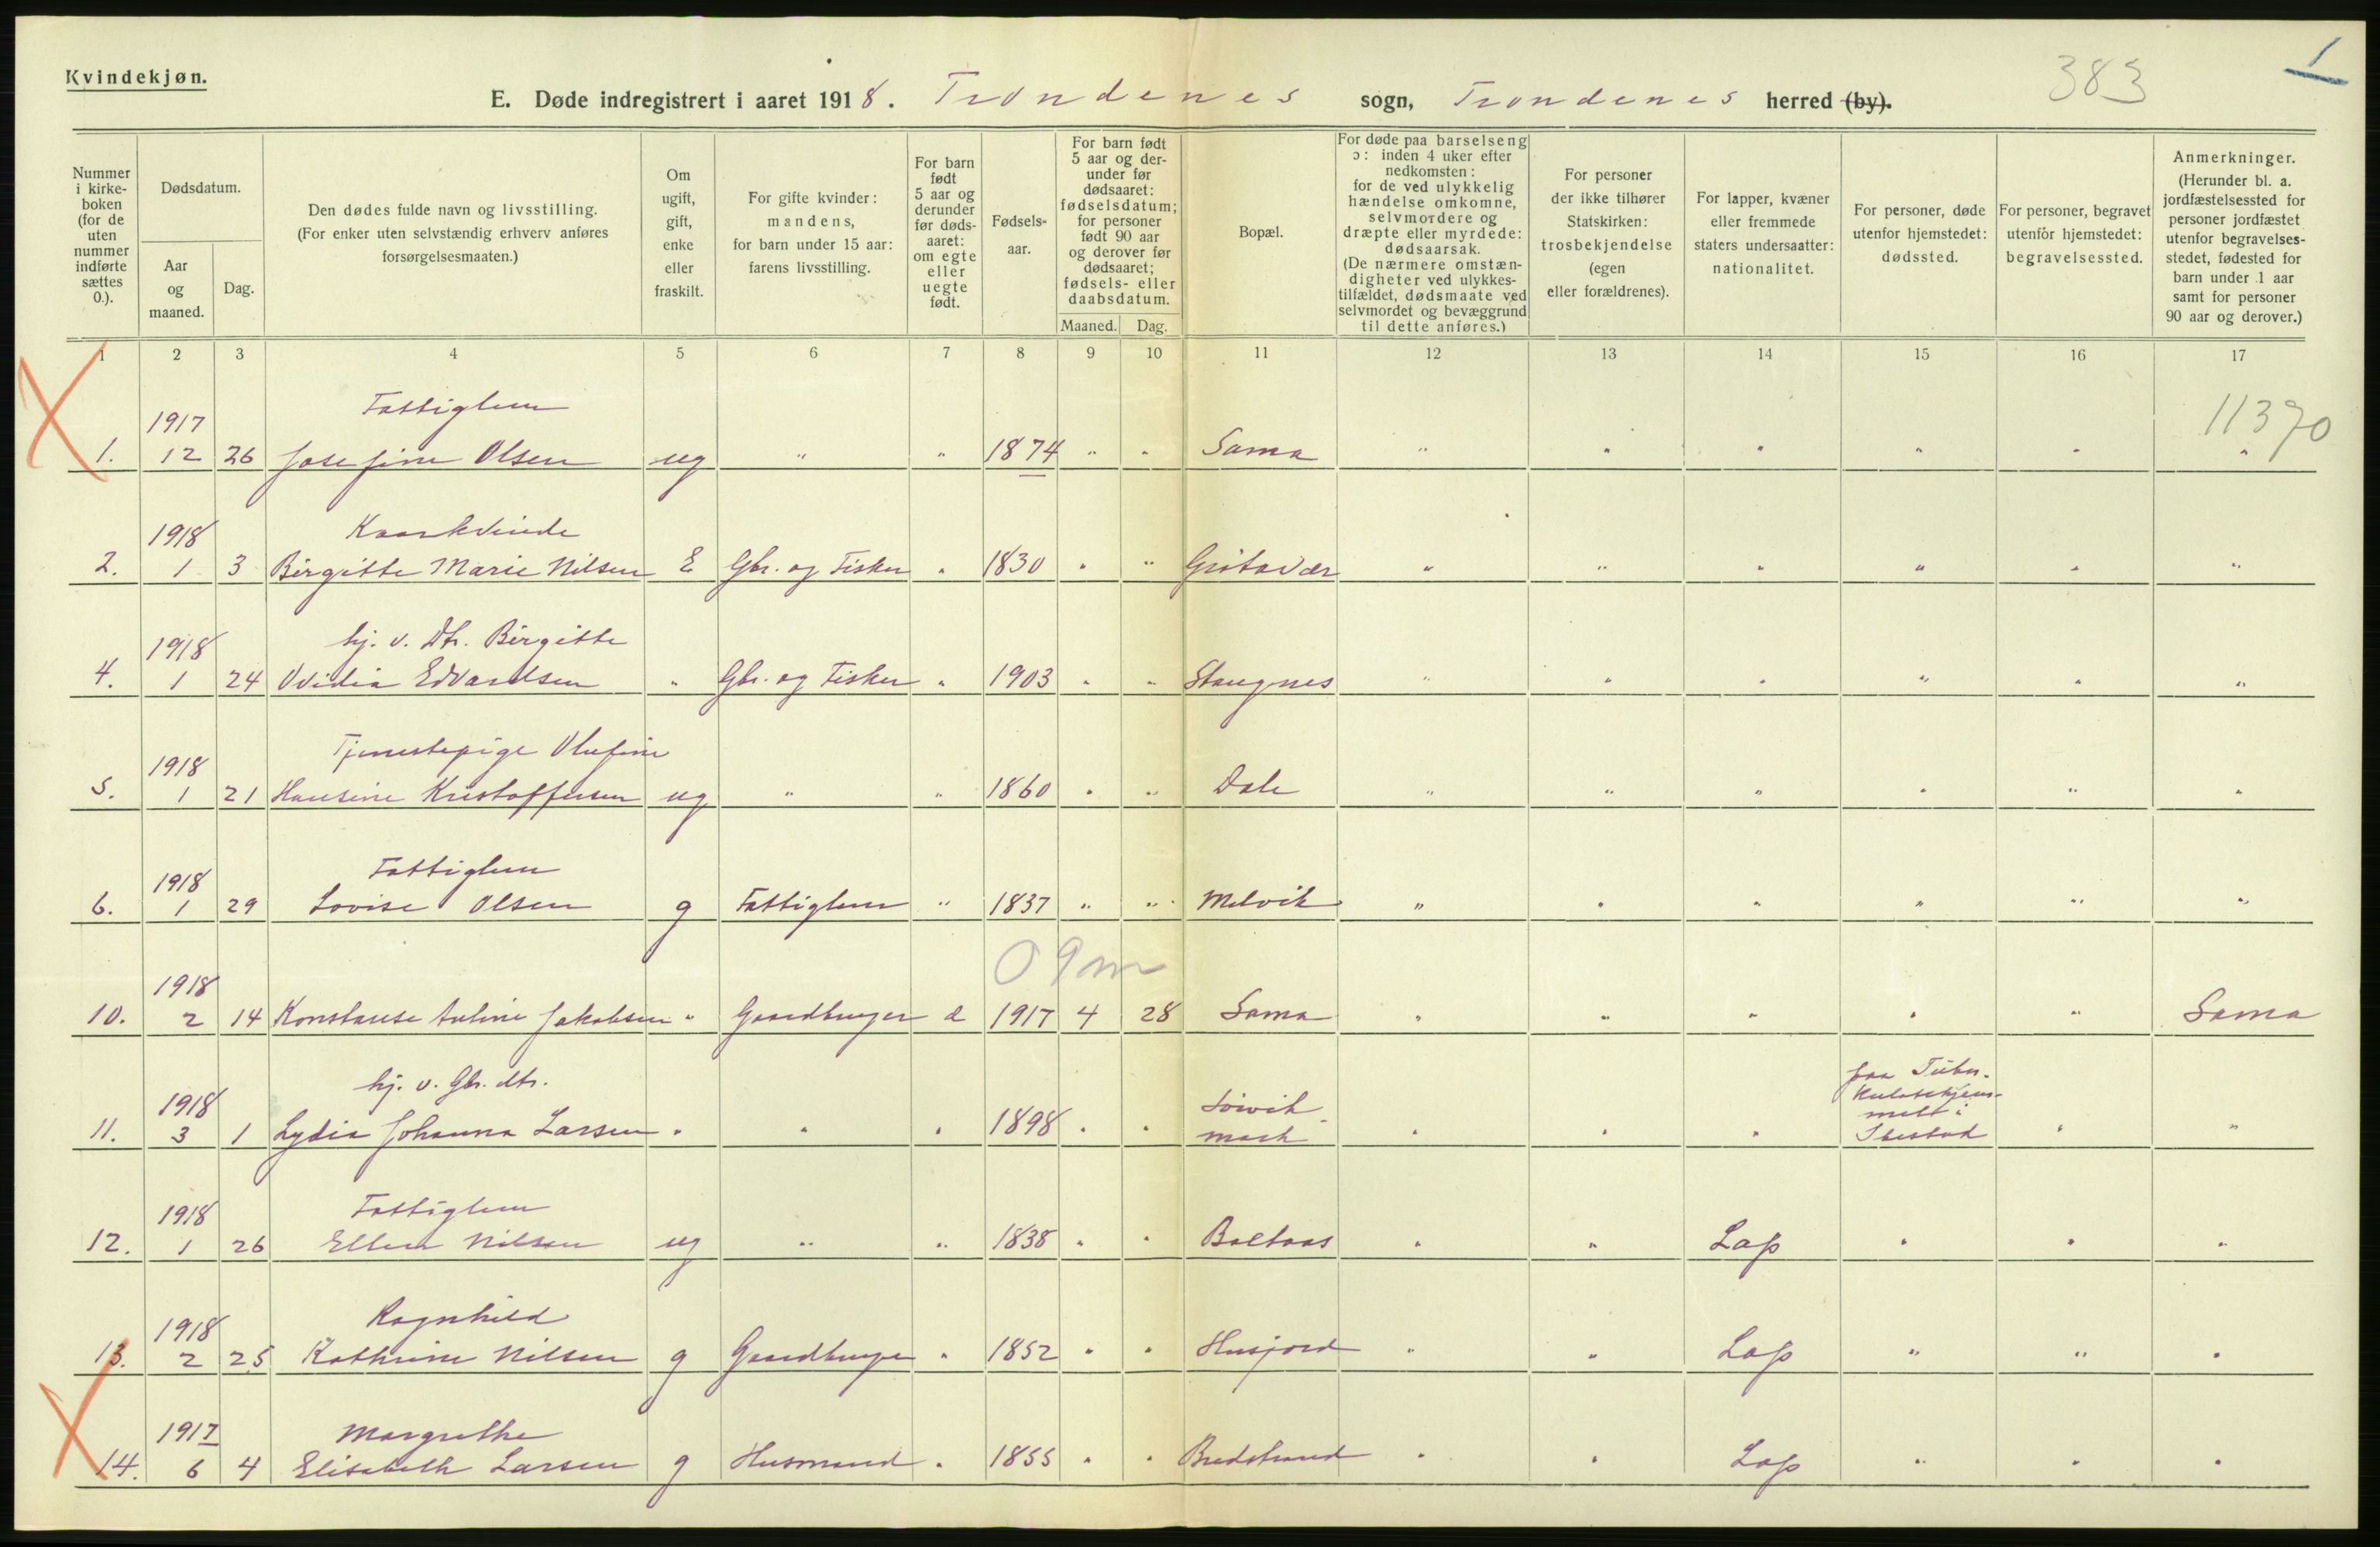 Kvindekjøn.
E. Døde indregistrert i aaret 1918. Trondenes sogn, Trondenes herred (by).
383
1
Nummer i kirke-boken (for de uten nummer indførte sættes 0.).
Dødsdatum.
Aar og maaned.
Dag.
Den dødes fulde navn og livsstilling.
(For enker uten selvstændig erhverv anføres
forsørgelsesmaaten.)
Om ugift, gift, enke eller fraskilt.
For gifte kvinder: mandens, for barn under 15 aar: farens livsstilling.
For barn født 5 aar og derunder før døds-aaret: om egte eller uegte født.
Fødsels-aar.
For barn født 5 aar og der-under før dødsaaret: fødselsdatum; for personer født 90 aar og derover før dødsaaret; fødsels- eller daabsdatum.
Maaned. Dag.
Bopæl.
For døde paa barselseng ɔ: inden 4 uker efter nedkomsten: for de ved ulykkelig hændelse omkomne, selvmordere og dræpte eller myrdede: dødsaarsak. (De nærmere omstæn-digheter ved ulykkes-tilfældet, dødsmaate ved selvmordet og bevæggrund til dette anføres.)
For personer der ikke tilhører Statskirken: trosbekjendelse (egen eller forældrenes).
For lapper, kvæner eller fremmede staters undersaatter: nationalitet.
For personer, døde utenfor hjemstedet: dødssted.
For personer, begravet utenfor hjemstedet: begravelsessted.
Anmerkninger. (Herunder bl. a. jordfæstelsessted for personer jordfæstet utenfor begravelses-stedet, fødested for barn under 1 aar samt for personer 90 aar og derover.)
1 2 3 4 5 6 7 8 9 10 11 12 13 14 15 16 17
1917 Fattiglem 11370
1. 12 26 Josefine Olsen ug " " 1874 " " Sama " " " " " "
1918 Kaarkvinde
2. 1 3 Birgitte Marie Nilsen E Gbr. og Fisker " 1830 " " Grøtavær " " " " " "
1918 hj. v. Dtr. Birgitte
4. 1 24 Ovidia Edvardsen " Gbr. og Fisker " 1903 " " Stangnes " " " " " "
1918 Tjenestepige Olufine
5. 1 21 Hansine Kristoffersen ug " " 1860 " " Dale " " " " " "
1918 Fattiglem
6. 1 29 Lovise Olsen g Fattiglem " 1837 " " Melvik " " " " " "
1918 0 9m
10. 2 14 Konstanse Antine Jakobsen " Gaardbruger d 1917 4 28 Sama " " " " " Sama
1918 hj. v. Gbr. dtr. paa Tuber-
kulosehjem-
met i
11. 3 1 Lydia Johanna Larsen " " " 1898 " " mark " " " Ibestad " "
1918 Fattiglem
12. 1 26 Ellen Nilsen ug " " 1838 " " Boltaas " " Lap " " "
1918 Ragnhild
13. 2 25 Kathrine Nilsen g Gaardbruger " 1852 " " Husjord " " Lap " " "
1917 Margrethe
14. 6 4 Elisabeth Larsen g Husmand " 1855 " " Bredstrand " " Lap " " "